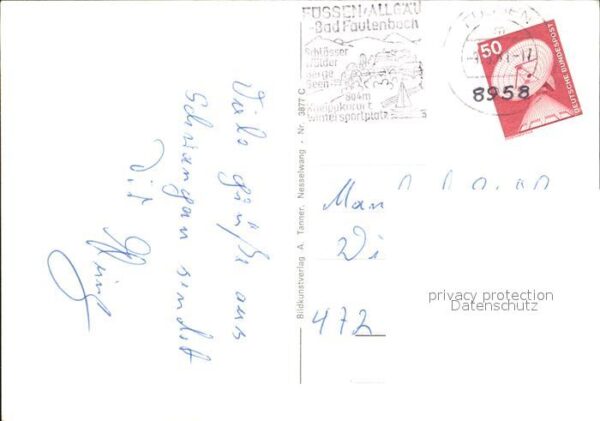 FÜSSEN/ALLGÄU
-Bad Faulenbach
Schlösser
Wälder
Berge
Seen
804m
Kneippkurort
Wintersportplatz
FÜSSEN
8958
50
DEUTSCHE BUNDESPOST
Viele Grüße aus
Schwangau sendet
Dir
Bildkunstverlag A. Tanner, Nesselwang · Nr. 3877 C
Man
Wi
472
privacy protection
Datenschutz